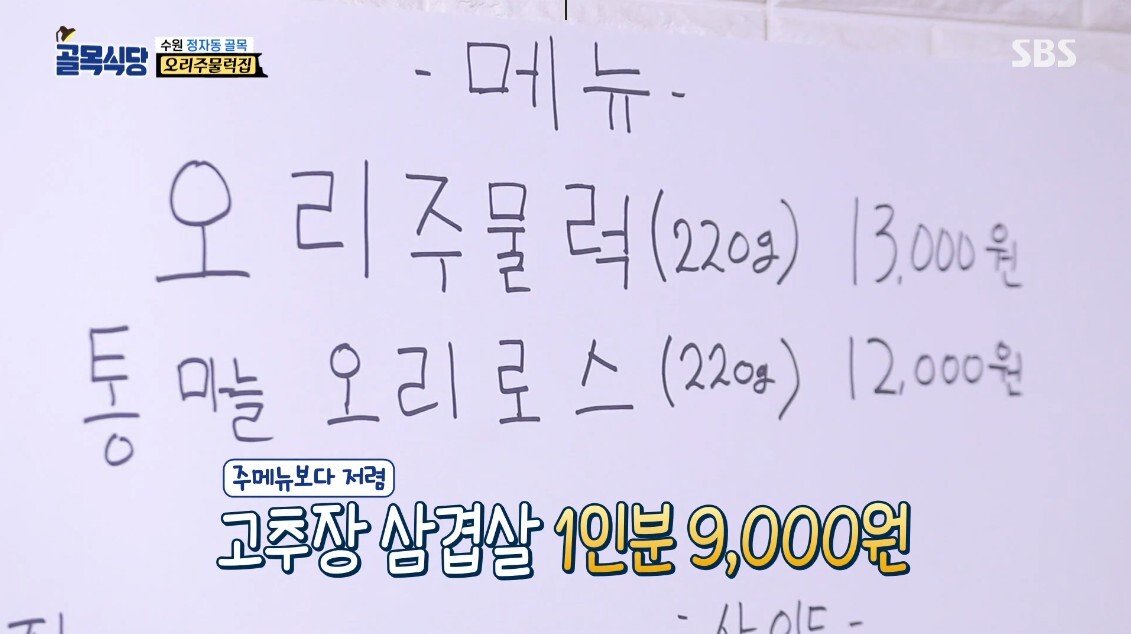 골목식당
수원 정자동 골목
오리주물럭집
SBS
- 메뉴 -
오리주물럭(220g) 13,000원
통마늘 오리로스(220g) 12,000원
주메뉴보다 저렴
고추장 삼겹살 1인분 9,000원